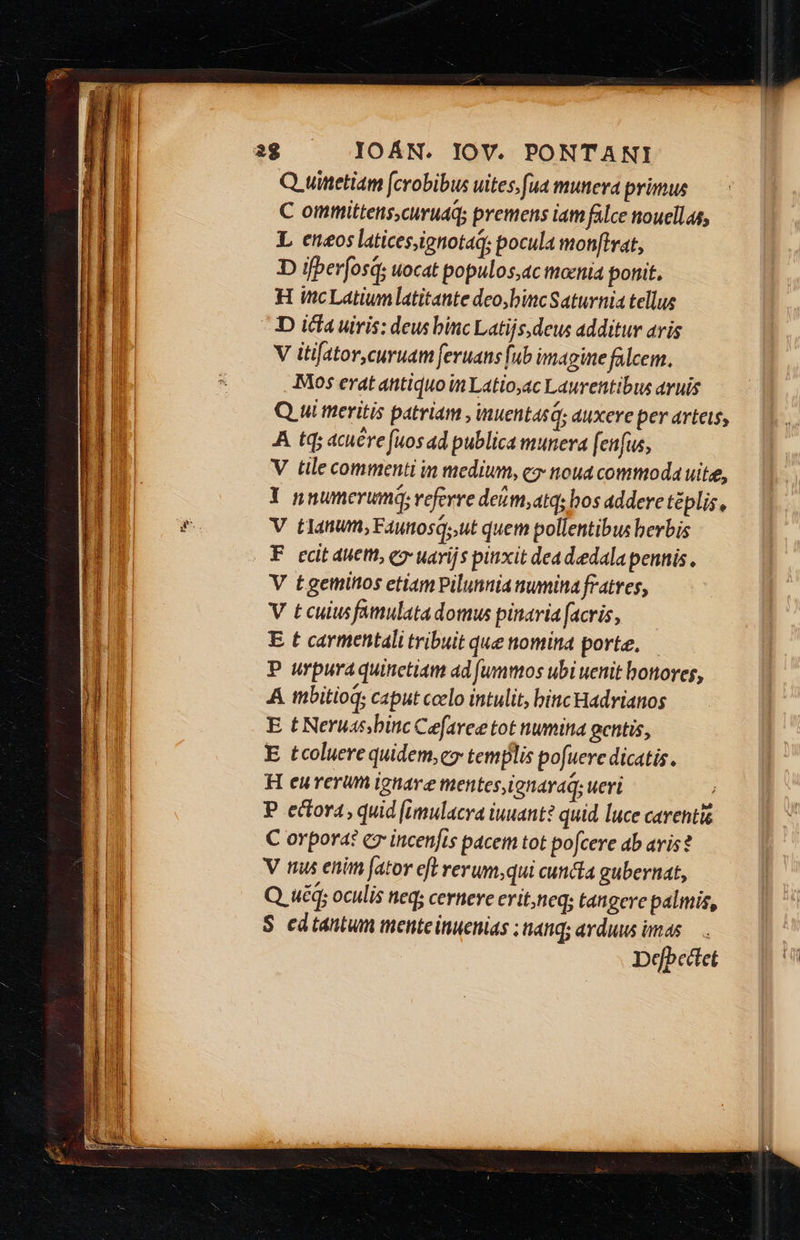 28 IOAN. IOV. PONTANI
Q uinetiam ſcrobibus uites, ſua munera primus
C ommittens, curuaq; premens iam falce nouellas,
L enæos latices, ignotaq́; pocula monſtrat,
D iſperſosq́; uocat populos, ac mœnia ponit.
H inc Latium latitante deo, hinc Saturnia tellus
D icta uiris: deus hinc Latijs, deus additur aris
V itiſator, curuam ſeruans ſub imagine falcem.
Mos erat antiquo in Latio, ac Laurentibus aruis
Q ui meritis patriam, inuentasq́; auxere per arteis,
A tq; acuêre ſuos ad publica munera ſenſus,
V tile commenti in medium, & noua commoda uitæ,
I nnumerumq́; referre deûm, atq; hos addere tēplis.
V t Ianum, Faunosq́;, ut quem pollentibus herbis
F ecit auem, & uarijs pinxit dea dædala pennis.
V t geminos etiam Pilunnia numina fratres,
V t cuius famulata domus pinaria ſacris,
E t carmentali tribuit quæ nomina portæ.
P urpura quinetiam ad ſummos ubi uenit honores,
A mbitioq́; caput cœlo intulit, hinc Hadrianos
E t Neruas, hinc Cæſareæ tot numina gentis,
E t coluere quidem, & templis poſuere dicatis.
H eu rerum ignaræ mentes, ignaraq́; ueri
P ectora, quid ſimulacra iuuant? quid luce carentū
C orpora? & incenſis pacem tot poſcere ab aris?
V nus enim ſator eſt rerum, qui cuncta gubernat,
Q uēq; oculis neq; cernere erit, neq; tangere palmis,
S ed tantum mente inuenias; nanq; arduus imas
Deſpectet